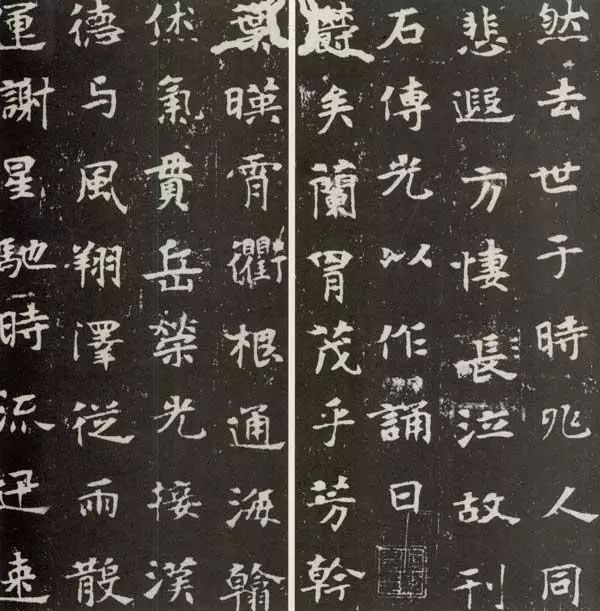 然去世于時兆人同
悲遐方悽長泣故刊
石傳光以作誦曰
鬱矣蘭胄茂乎芳幹
葉暎霄衢根通海翰
休氣貫岳榮光接漢
德与風翔澤從雨散
運謝星馳時流迅速